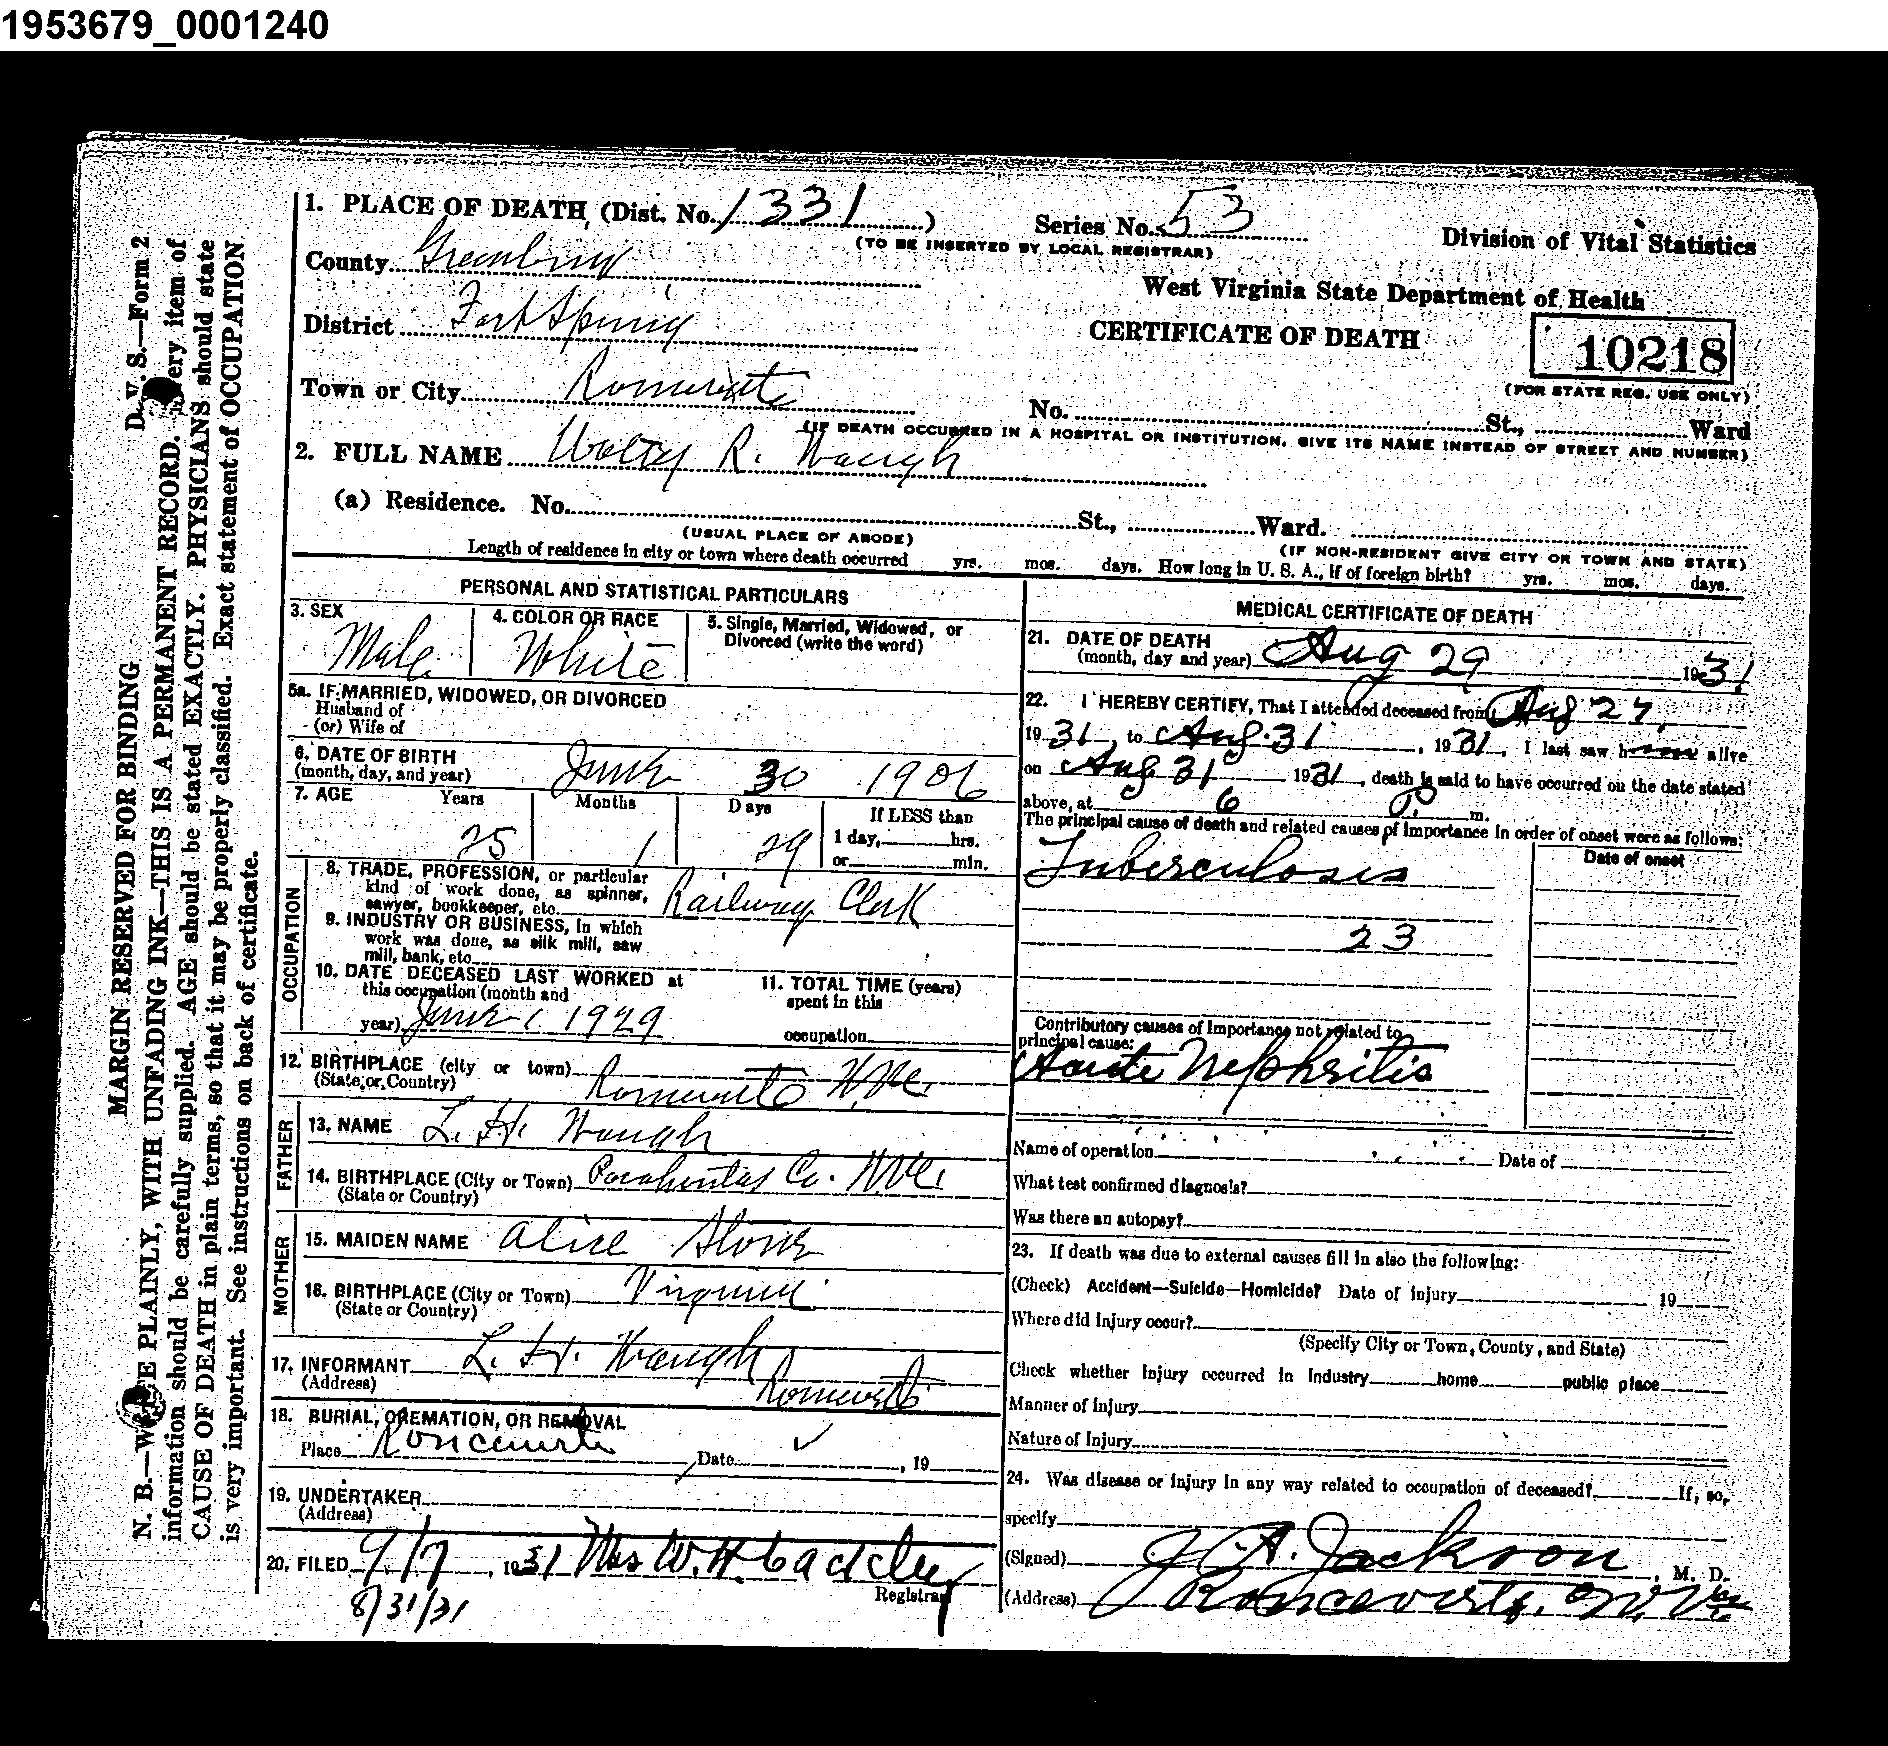 1953679_0001240
1. PLACE OF DEATH, (Dist. No. 1331)
Series No. 53
(TO BE INSERTED BY LOCAL REGISTRAR)
Division of Vital Statistics
County
West Virginia State Department of Health
District Fort Spring
CERTIFICATE OF DEATH
10218
(FOR STATE REG. USE ONLY)
Town or City Ronceverte
No. St., Ward
(IF DEATH OCCURRED IN A HOSPITAL OR INSTITUTION, GIVE ITS NAME INSTEAD OF STREET AND NUMBER)
2. FULL NAME R. Waugh
(a) Residence. No. St., Ward.
(USUAL PLACE OF ABODE)
(IF NON-RESIDENT GIVE CITY OR TOWN AND STATE)
Length of residence in city or town where death occurred yrs. mos. days. How long in U. S. A., if of foreign birth? yrs. mos. days.
PERSONAL AND STATISTICAL PARTICULARS
3. SEX
Male
4. COLOR OR RACE
White
5. Single, Married, Widowed, or
Divorced (write the word)
5a. IF MARRIED, WIDOWED, OR DIVORCED
Husband of
(or) Wife of
6. DATE OF BIRTH
(month, day, and year) June 30 1906
7. AGE Years Months Days If LESS than
25 1 29 1 day, hrs.
or min.
OCCUPATION
8. TRADE, PROFESSION, or particular
kind of work done, as spinner,
sawyer, bookkeeper, etc. Railway Clerk
9. INDUSTRY OR BUSINESS, in which
work was done, as silk mill, saw
mill, bank, etc.
10. DATE DECEASED LAST WORKED at
this occupation (month and
year) June 1929
11. TOTAL TIME (years)
spent in this
occupation
12. BIRTHPLACE (city or town)
(State or Country) Ronceverte W.Va.
FATHER
13. NAME L. H. Waugh
14. BIRTHPLACE (City or Town) Pocahontas Co. W.Va.
(State or Country)
MOTHER
15. MAIDEN NAME Alice
16. BIRTHPLACE (City or Town) Virginia
(State or Country)
17. INFORMANT L. H. Waugh
(Address) Ronceverte
18. BURIAL, CREMATION, OR REMOVAL
Place Ronceverte Date ✓, 19
19. UNDERTAKER
(Address)
20. FILED 9/7, 1931 Mrs W. H. Cackley
Registrar
8/31/31
MEDICAL CERTIFICATE OF DEATH
21. DATE OF DEATH
(month, day and year) Aug 29 1931
22. I HEREBY CERTIFY, That I attended deceased from Aug 27,
1931, to Aug. 31, 1931, I last saw h alive
on Aug 31 1931, death is said to have occurred on the date stated
above, at 6 P. m.
The principal cause of death and related causes of importance in order of onset were as follows:
Date of onset
Tuberculosis
23
Contributory causes of importance not related to
principal cause:
Acute Nephritis
Name of operation Date of
What test confirmed diagnosis?
Was there an autopsy?
23. If death was due to external causes fill in also the following:
(Check) Accident—Suicide—Homicide? Date of injury 19
Where did injury occur?
(Specify City or Town, County, and State)
Check whether injury occurred in industry home public place
Manner of injury
Nature of injury
24. Was disease or injury in any way related to occupation of deceased? If, so,
specify
(Signed) J. A. Jackson, M. D.
(Address) Ronceverte, W. Va.
D. V. S.—Form 2
MARGIN RESERVED FOR BINDING
N. B.—WRITE PLAINLY, WITH UNFADING INK—THIS IS A PERMANENT RECORD. Every item of
information should be carefully supplied. AGE should be stated EXACTLY. PHYSICIANS should state
CAUSE OF DEATH in plain terms, so that it may be properly classified. Exact statement of OCCUPATION
is very important. See instructions on back of certificate.